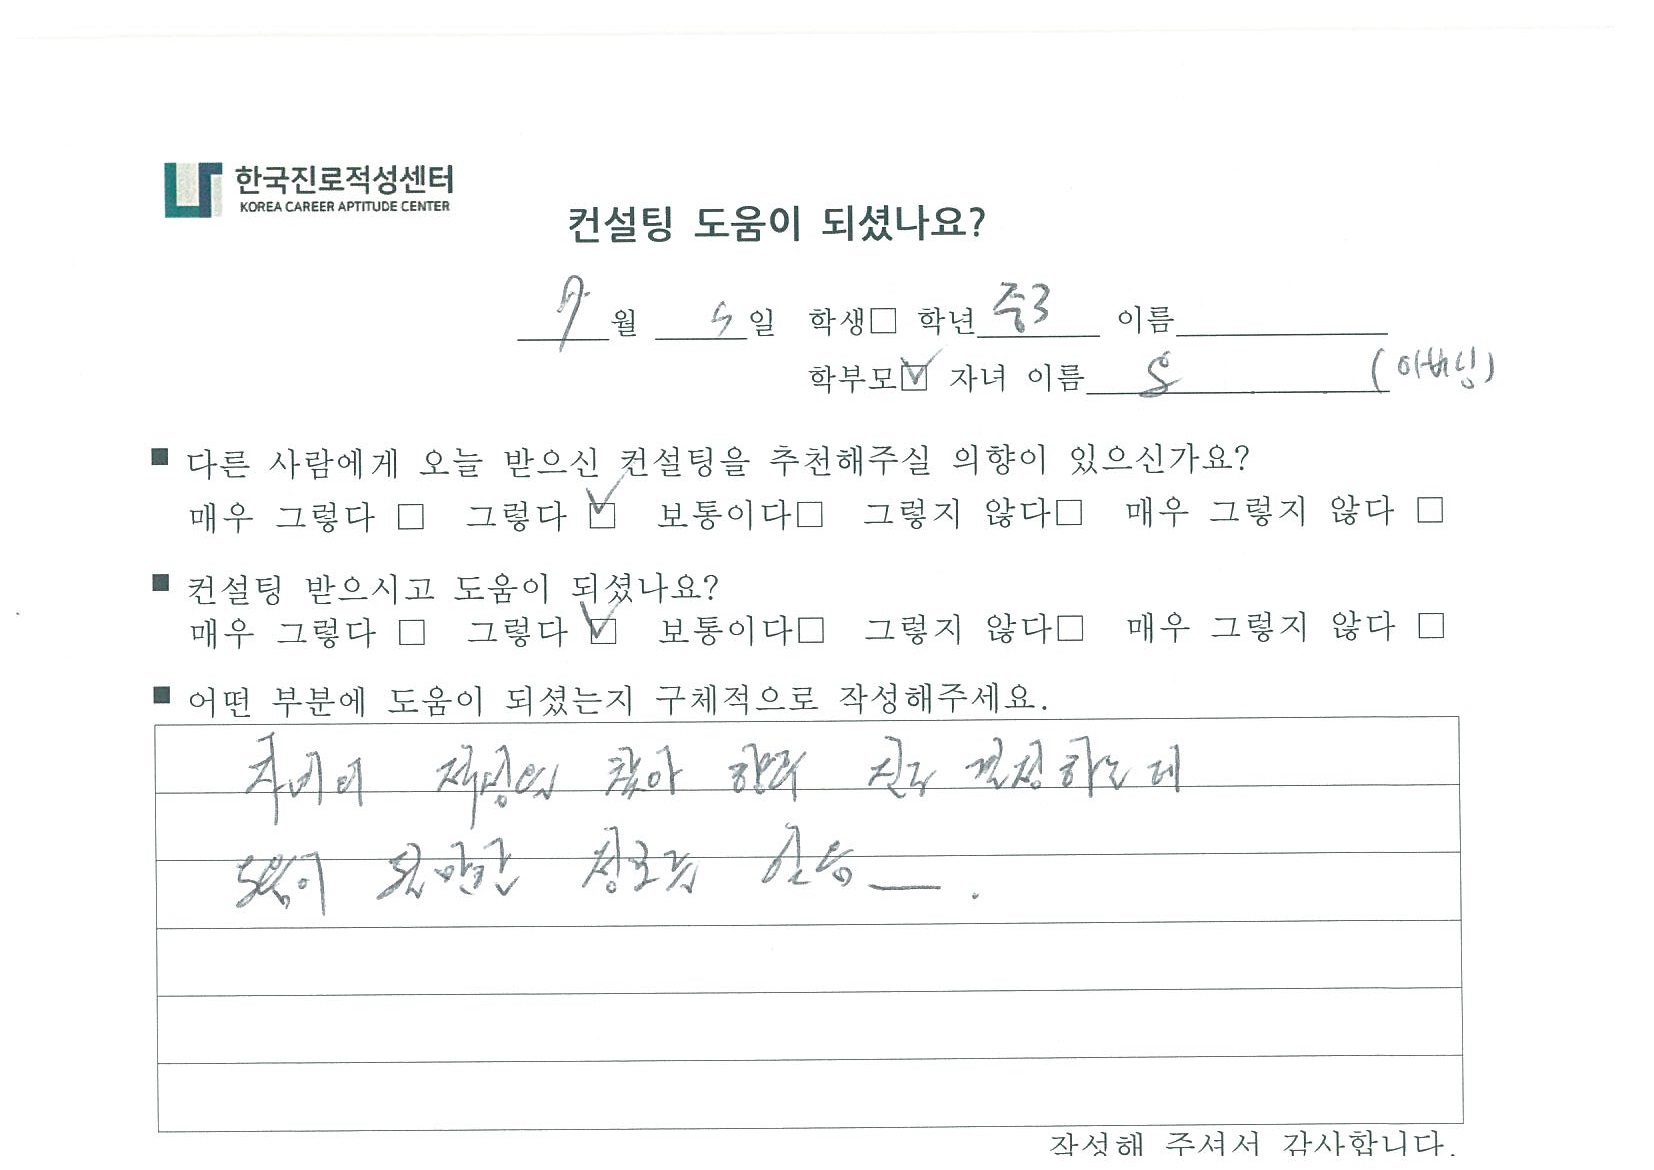 한국진로적성센터
KOREA CAREER APTITUDE CENTER
컨설팅 도움이 되셨나요?
7월 5일 학생□ 학년 중3 이름
학부모☑ 자녀 이름 윤 (아버님)
■ 다른 사람에게 오늘 받으신 컨설팅을 추천해주실 의향이 있으신가요?
매우 그렇다 □ 그렇다 ☑ 보통이다□ 그렇지 않다□ 매우 그렇지 않다 □
■ 컨설팅 받으시고 도움이 되셨나요?
매우 그렇다 □ 그렇다 ☑ 보통이다□ 그렇지 않다□ 매우 그렇지 않다 □
■ 어떤 부분에 도움이 되셨는지 구체적으로 작성해주세요.
적성을 찾아 향후 진로 결정하는데
도움이 될만한 정보를 얻음 .
작성해 주셔서 감사합니다.